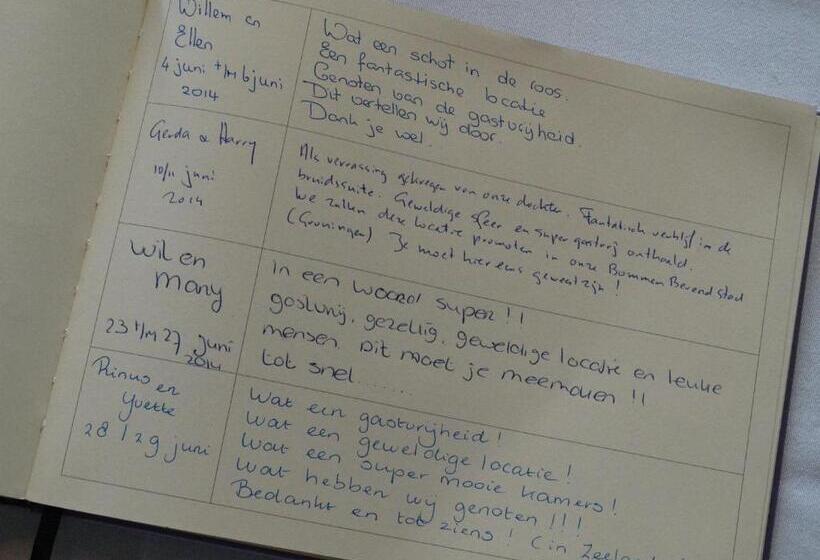 Willem en
Ellen
4 juni t/m 6 juni
2014
Wat een schot in de roos.
Een fantastische locatie
Genoten van de gastvrijheid.
Dit vertellen wij door.
Dank je wel.
Gerda & Harry
10/11 juni
2014
Als verrassing gekregen van onze dochter. Fantastisch verblijf in de
bruidssuite. Geweldige sfeer en super gastvrij onthaald.
We zullen deze locatie promoten in onze Bommen Berend stad
(Groningen) Je moet hier eens geweest zijn!
Wil en
Many
23 t/m 27 juni
2014
in een woord super!!
gastvrij, gezellig, geweldige locatie en leuke
mensen. Dit moet je meemaken!!
tot snel.......
Rinus en
Yvette
28 / 29 juni
Wat een gastvrijheid!
Wat een geweldige locatie!
Wat een super mooie kamers!
Wat hebben wij genoten!!!
Bedankt en tot ziens! (in